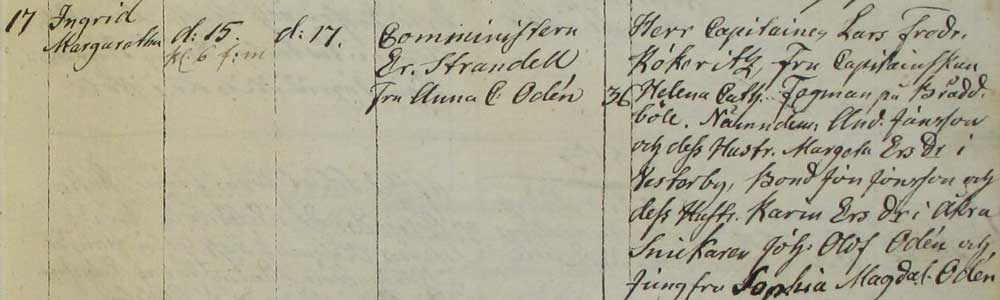 17 Ingrid
Margaretha
d: 15.
kl: 6 f:m
d: 17.
Comministern
Er. Strandell
Fru Anna C. Odén
36
Herr Capitainen Lars Fredr.
Kökeritz, Fru Capitainskan
Helena Cath. Fogman på Brådd-
böle. Nämndem: And. Jansson
och dess Hustr. Margeta Ers Dr i
Vesterby, Bond Jon Jonsson och
dess Hustr. Karin Ers Dr i Åkra
Snickaren Joh: Olof Odén och
Jungfru Sophia Magdal. Odén